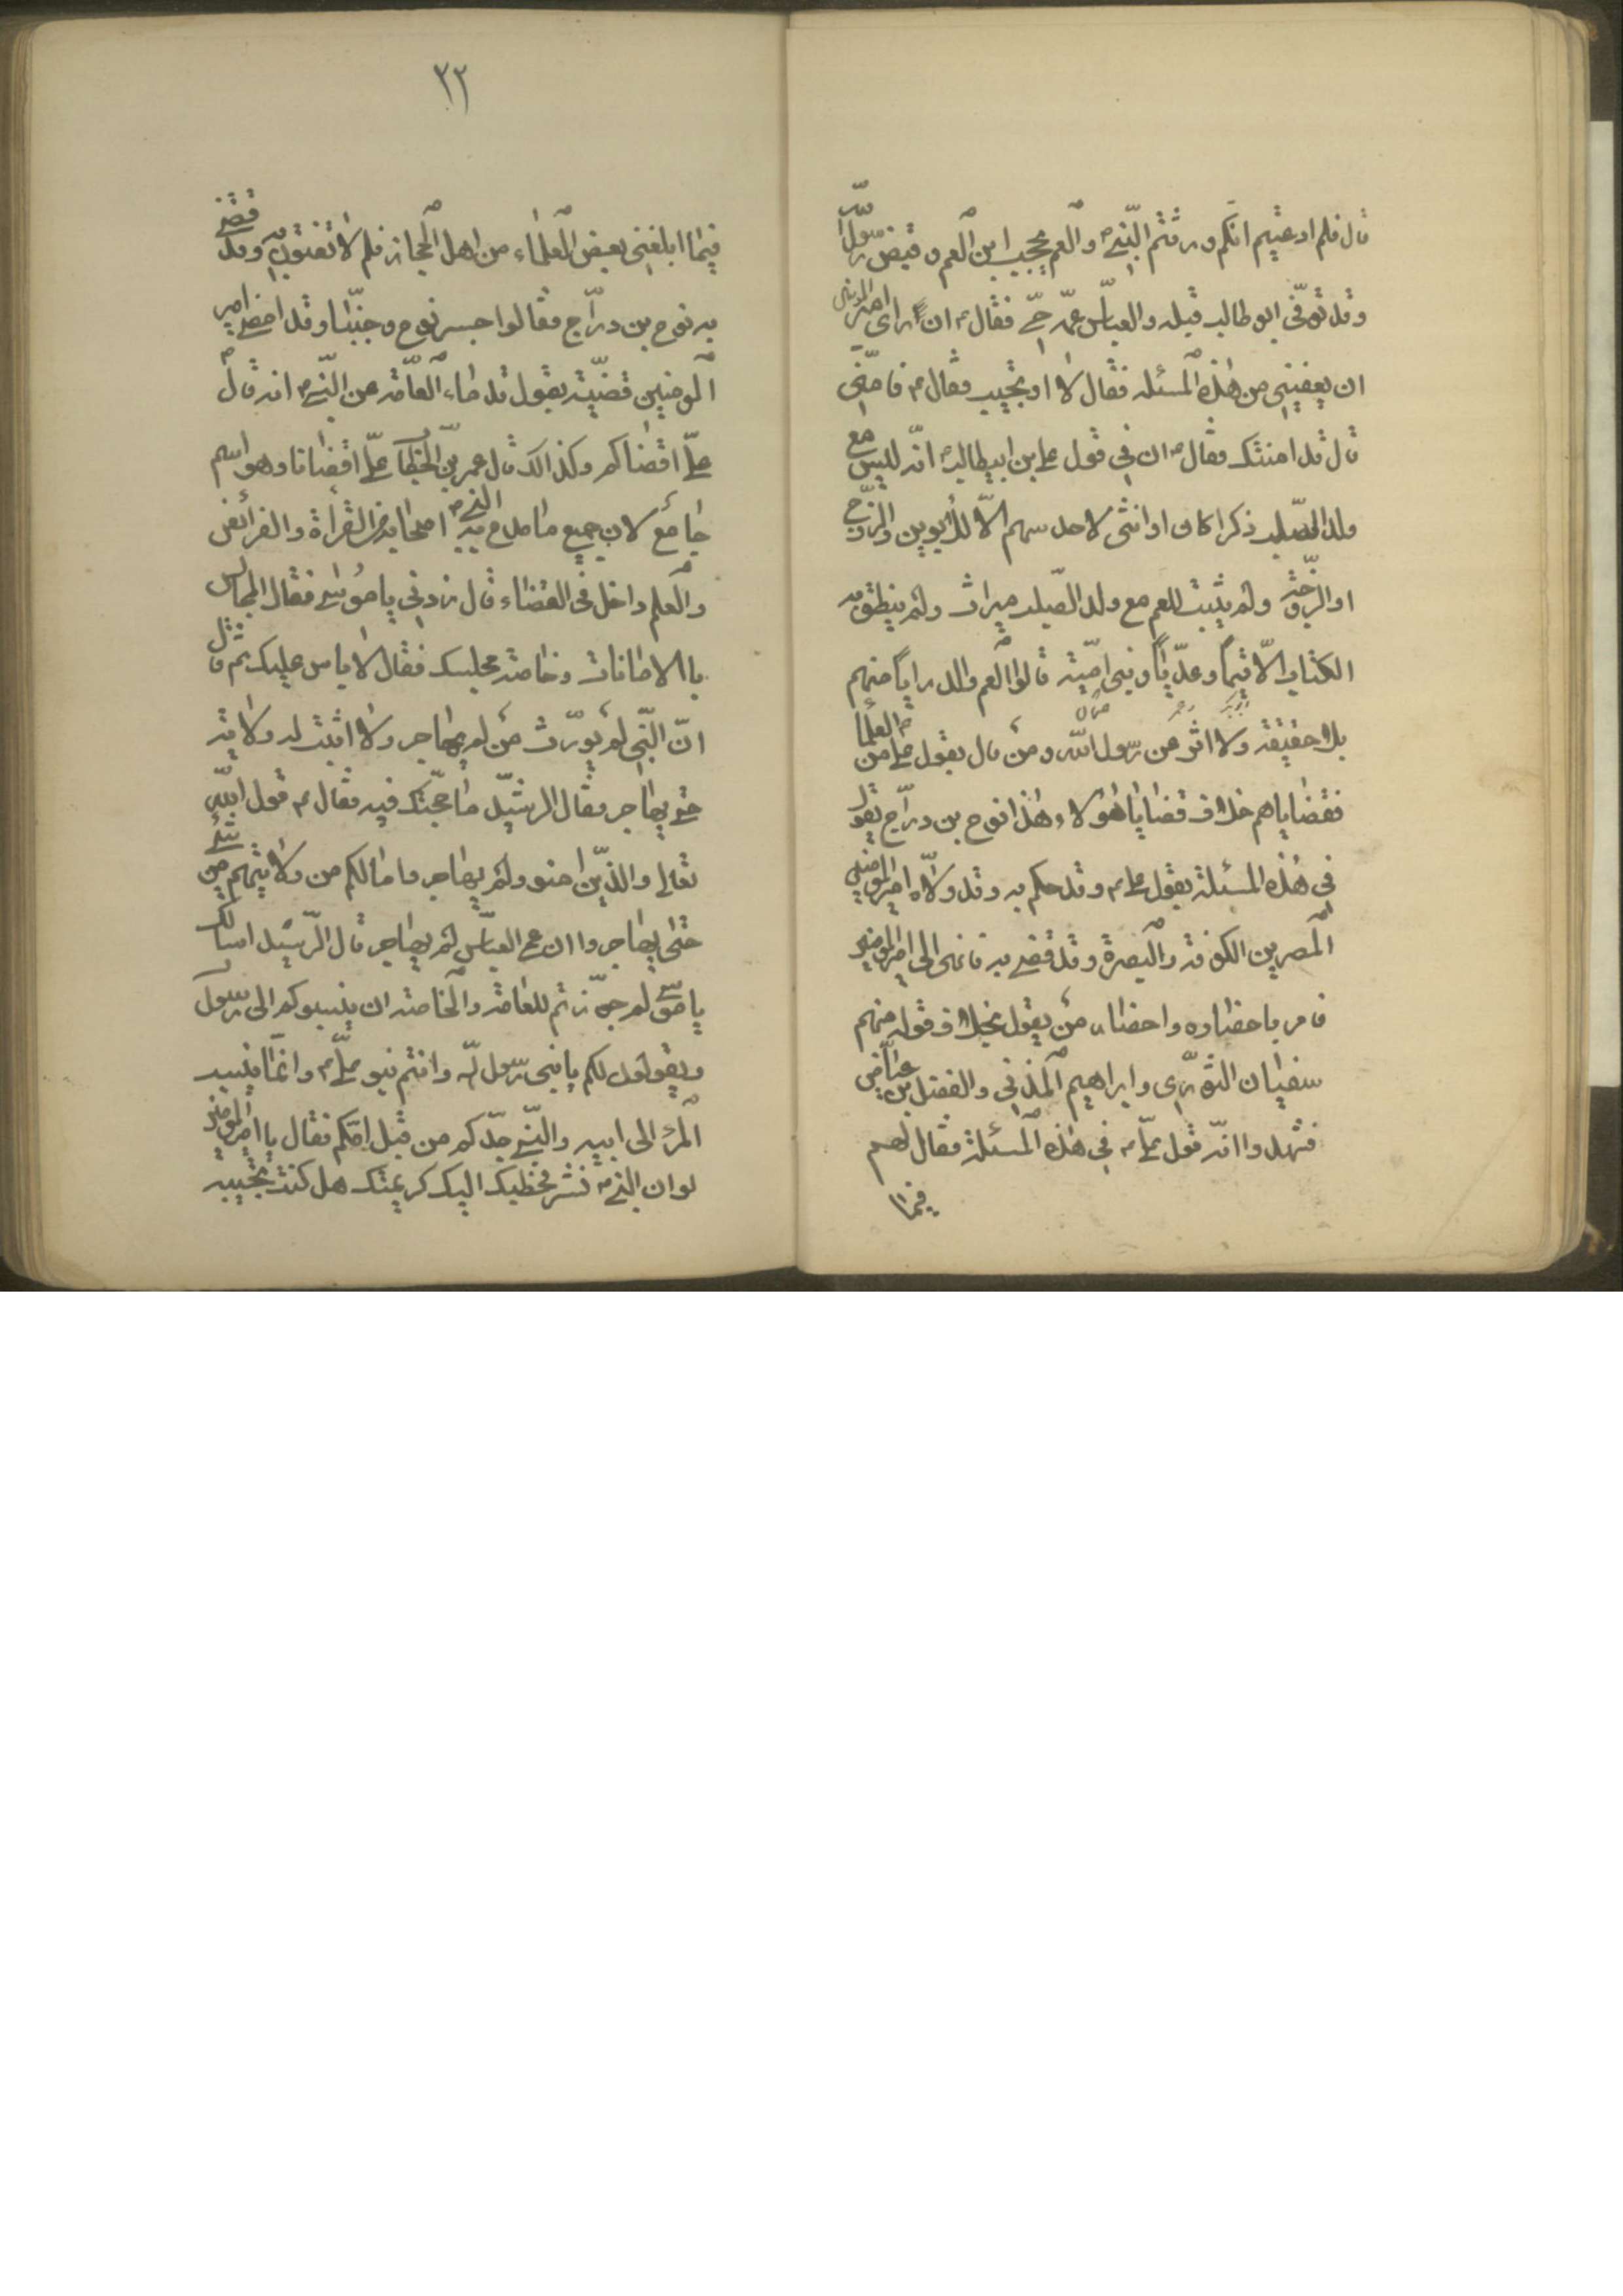 قال فلم ادعيتم انكم ورثتم النبي ص والعم يحجب ابن العم وقبض رسول الله
وقد توفي ابو طالب قبله والعباس عمه حي فقال ع ان راى امير المؤمنين
ان يعفيني من هذه المسئله فقال لا او تجيب فقال ع فامني
قال قد امنتك فقال ع ان في قول علي بن ابيطالب ع انه ليس مع
ولد الصلب ذكرا كان او انثى لاحد سهم الا للأبوين والزوج
او الزوجة ولم يثبت للعم مع ولد الصلب ميراث ولم ينطق به
الكتاب الا تيما وعديا وبني امية قالوا العم والد رايا منهم
بلا حقيقة ولا اثر عن رسول الله ومن قال بقول علي من العلما
فقضاياهم خلاف قضايا هؤلاء وهذا نوح بن دراج يقول
في هذه المسئلة بقول علي ع وقد حكم به وقد ولاه امير المؤمنين
المصرين الكوفة والبصرة وقد قضى به فانهى الى امير المؤمنين
فامر باحضاره واحضار من يقول بخلاف قوله منهم
سفيان الثوري وابراهيم المدني والفضل بن عياض
فشهدوا انه قول علي ع في هذه المسئلة فقال لهم
فيما
٣٢
فيما ابلغني بعض العلماء من اهل الحجاز فلم لا تفتون به وقد قضى
به نوح بن دراج فقالوا جسر نوح وجبنا وقد امضى امير
المومنين قضيته بقول قدماء العامة عن النبي ص انه قال
علي اقضاكم وكذالك قال عمر بن الخطاب علي اقضانا وهو اسم
جامع لان جميع ما مدح به النبي ص اصحابه من القرأة والفرائض
والعلم داخل في القضاء قال زدني يا موسى فقال المجالس
بالامانات وخاصة مجلسك فقال لا باس عليك ثم قال
ان النبي لم يورث من لم يهاجر ولا اثبت له ولاية
حتى يهاجر فقال الرشيد ما حجتك فيه فقال ع قول الله
تعالى والذين امنو ولم يهاجروا ما لكم من ولايتهم من شئ
حتى يهاجروا وان عمي العباس لم يهاجر قال الرشيد اسالك
يا موسى لم جوزتم للعامة والخاصة ان ينسبوكم الى رسول
ويقولون لكم يا بني رسول الله وانتم بنو علي ع وانما ينسب
المرء الى ابيه والنبي جدكم من قبل امكم فقال يا امير المؤمنين
لو ان النبي ص نشر فخطب اليك كريمتك هل كنت تجيبه